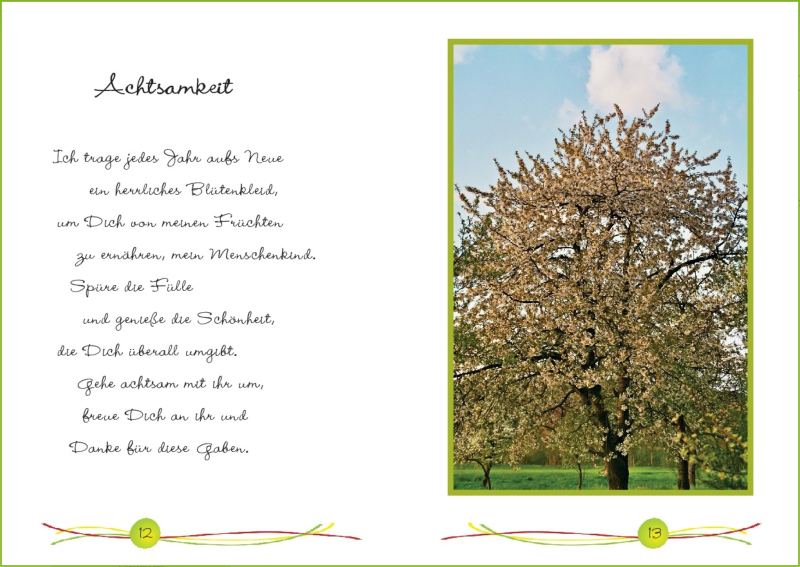 Achtsamkeit
Ich trage jedes Jahr aufs Neue
ein herrliches Blütenkleid,
um Dich von meinen Früchten
zu ernähren, mein Menschenkind.
Spüre die Fülle
und genieße die Schönheit,
die Dich überall umgibt.
Gehe achtsam mit ihr um,
freue Dich an ihr und
Danke für diese Gaben.
12
13